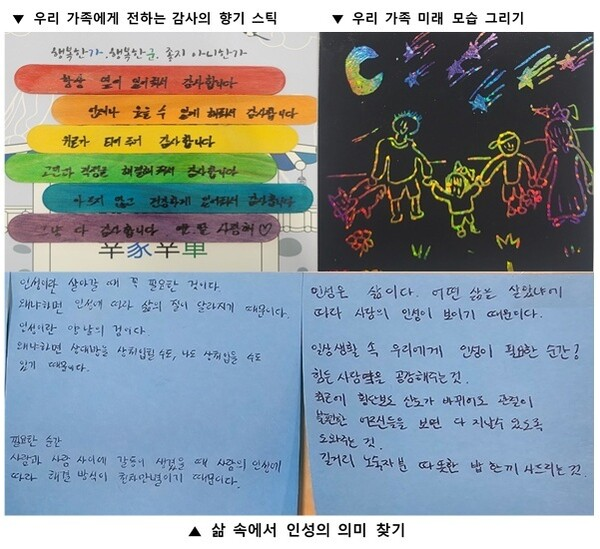 ▼ 우리 가족에게 전하는 감사의 향기 스틱
▼ 우리 가족 미래 모습 그리기
행복한가.행복한군. 좋지 아니한가
항상 옆에 있어줘서 감사합니다
언제나 웃을 수 있게 해줘서 감사합니다
위로가 되어 주어 감사합니다
고민과 걱정을 해결해줘서 감사합니다
아프지 않고 건강하게 있어줘서 감사합니다
그냥 다 감사합니다 사랑해♡
幸家幸軍
인성이란 살아갈 때 꼭 필요한 것이다.
왜냐하면 인성에 따라 삶의 질이 달라지기 때문이다.
인성이란 양날의 검이다.
왜냐하면 상대방을 상처입힐 수도, 나도 상처입을 수도
있기 때문이다.
필요한 순간
사람과 사람 사이에 갈등이 생겼을 때 사람의 인성에
따라 해결 방식이 천차만별이기 때문이다.
인성은 삶이다. 어떤 삶을 살았냐에
따라 사람의 인성이 보이기 때문이다.
일상생활 속 우리에게 인성이 필요한 순간?
힘든 사람을 공감해주는 것.
횡단보도 신호가 바뀌어도 관절이
불편한 어르신들을 보면 다 지날수 있도록
도와주는 것.
길거리 노숙자분 따뜻한 밥 한끼 사드리는 것.
▲ 삶 속에서 인성의 의미 찾기